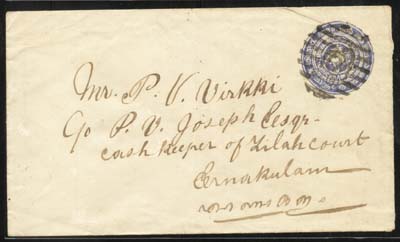 Mr. P. V. Virkki
C/o P. V. Joseph Eesqr-
cash keeper of Zilah court
Ernakulam